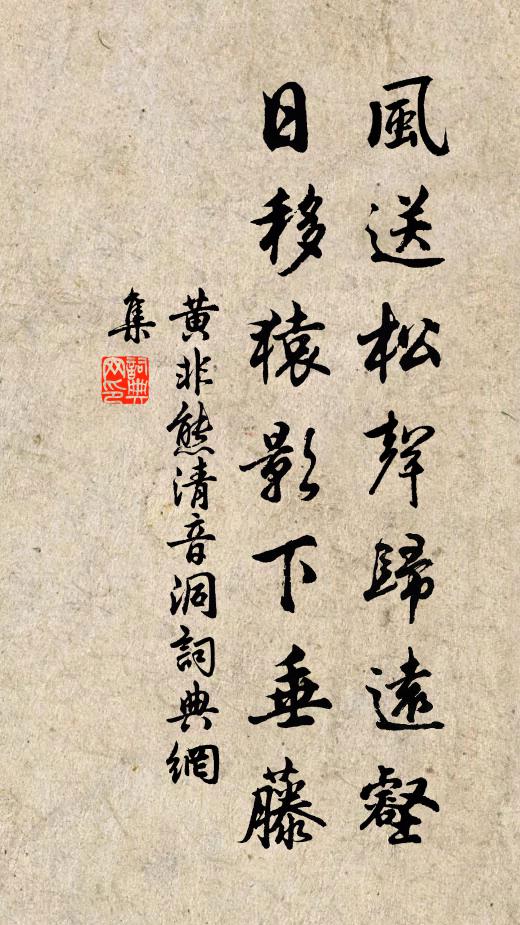 風送松聲歸遠壑
日移猿影下垂藤
黃非熊清音洞詞典網
集
詞典網印